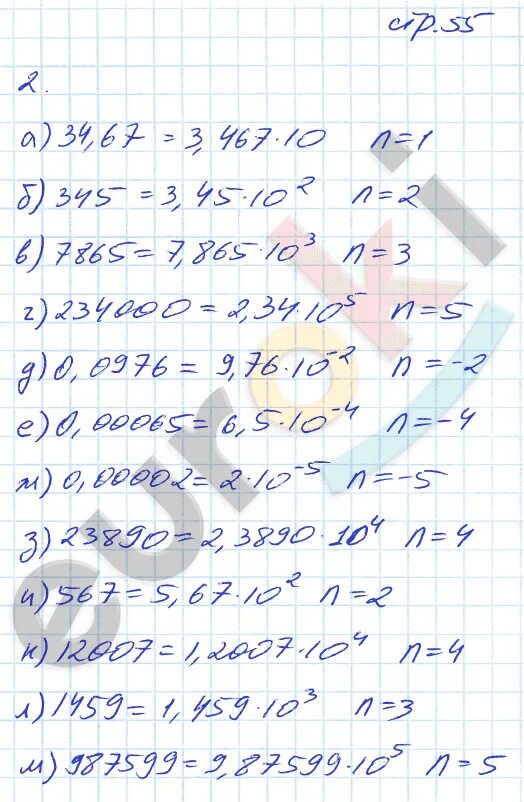 стр.55
2.
а) 34,67 = 3,467·10 n=1
б) 345 = 3,45·10² n=2
в) 7865 = 7,865·10³ n=3
г) 234000 = 2,34·10⁵ n=5
д) 0,0976 = 9,76·10⁻² n=-2
е) 0,00065 = 6,5·10⁻⁴ n=-4
ж) 0,00002 = 2·10⁻⁵ n=-5
з) 23890 = 2,3890·10⁴ n=4
и) 567 = 5,67·10² n=2
к) 12007 = 1,2007·10⁴ n=4
л) 1459 = 1,459·10³ n=3
м) 987599 = 9,87599·10⁵ n=5
euroki